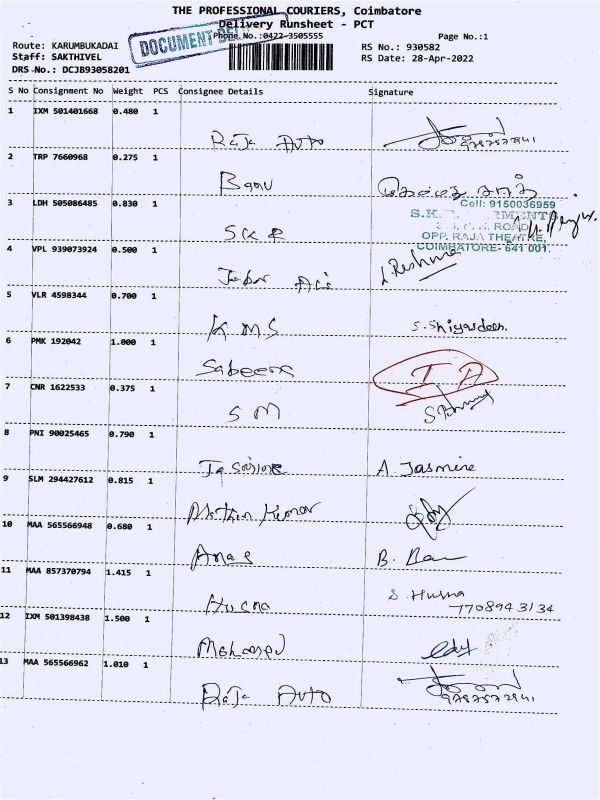 THE PROFESSIONAL COURIERS, Coimbatore
Delivery Runsheet - PCT
Phone No.:0422-3505555
Page No.:1
Route: KARUMBUKADAI
RS No.: 930582
Staff: SAKTHIVEL
RS Date: 28-Apr-2022
DRS No.: DCJB93058201
DOCUMENT
S No Consignment No Weight PCS Consignee Details Signature
1 IXM 501401668 0.480 1
Raja Auto
2 TRP 7660968 0.275 1
Banu
3 LDH 505086485 0.830 1
SKR
Cell: 9150036959
S.K.
ROAD
OPP. RAJA THEATRE,
COIMBATORE- 641 001.
4 VPL 939073924 0.500 1
Jabar Ali L. Reshma
5 VLR 4598344 0.700 1
KMS
6 PMK 192042 1.000 1
Sabeena I A
7 CNR 1622533 0.375 1
SM
8 PNI 90025465 0.790 1
A. Jasmine
9 SLM 294427612 0.815 1
Mothin Kumar
10 MAA 565566948 0.680 1
Anas B.
11 MAA 857370794 1.415 1
Husna S. Husna
7708943134
12 IXM 501398438 1.500 1
13 MAA 565566962 1.010 1
Raja Auto 9787572941